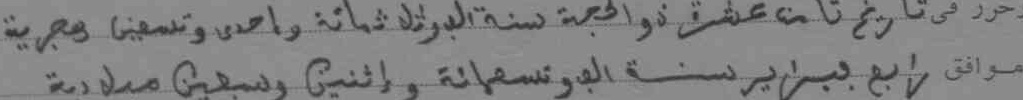 حرر في تاريخ ثامن عشرة ذو الحجة سنة الف وثلاثمائة واحدى وتسعين هجرية
موافق رابع فبراير سنة الف وتسعمائة وإثنين وسبعين ميلادية